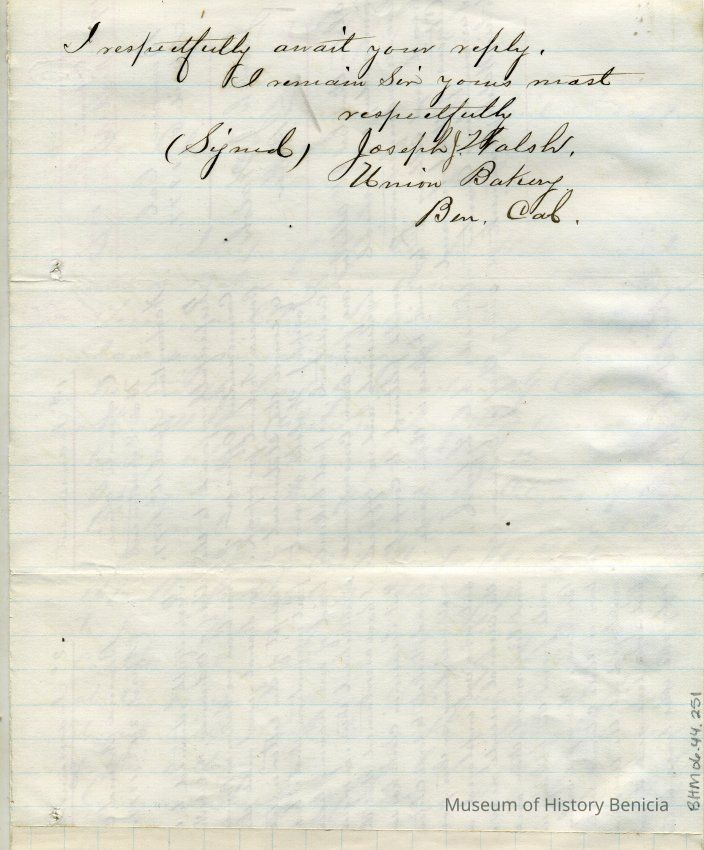 I respectfully await your reply.
I remain Sir yours most
respectfully
(Signed) Joseph Walsh.
Union Bakery
Ben. Cal.
Museum of History Benicia
BHM 06.44.251